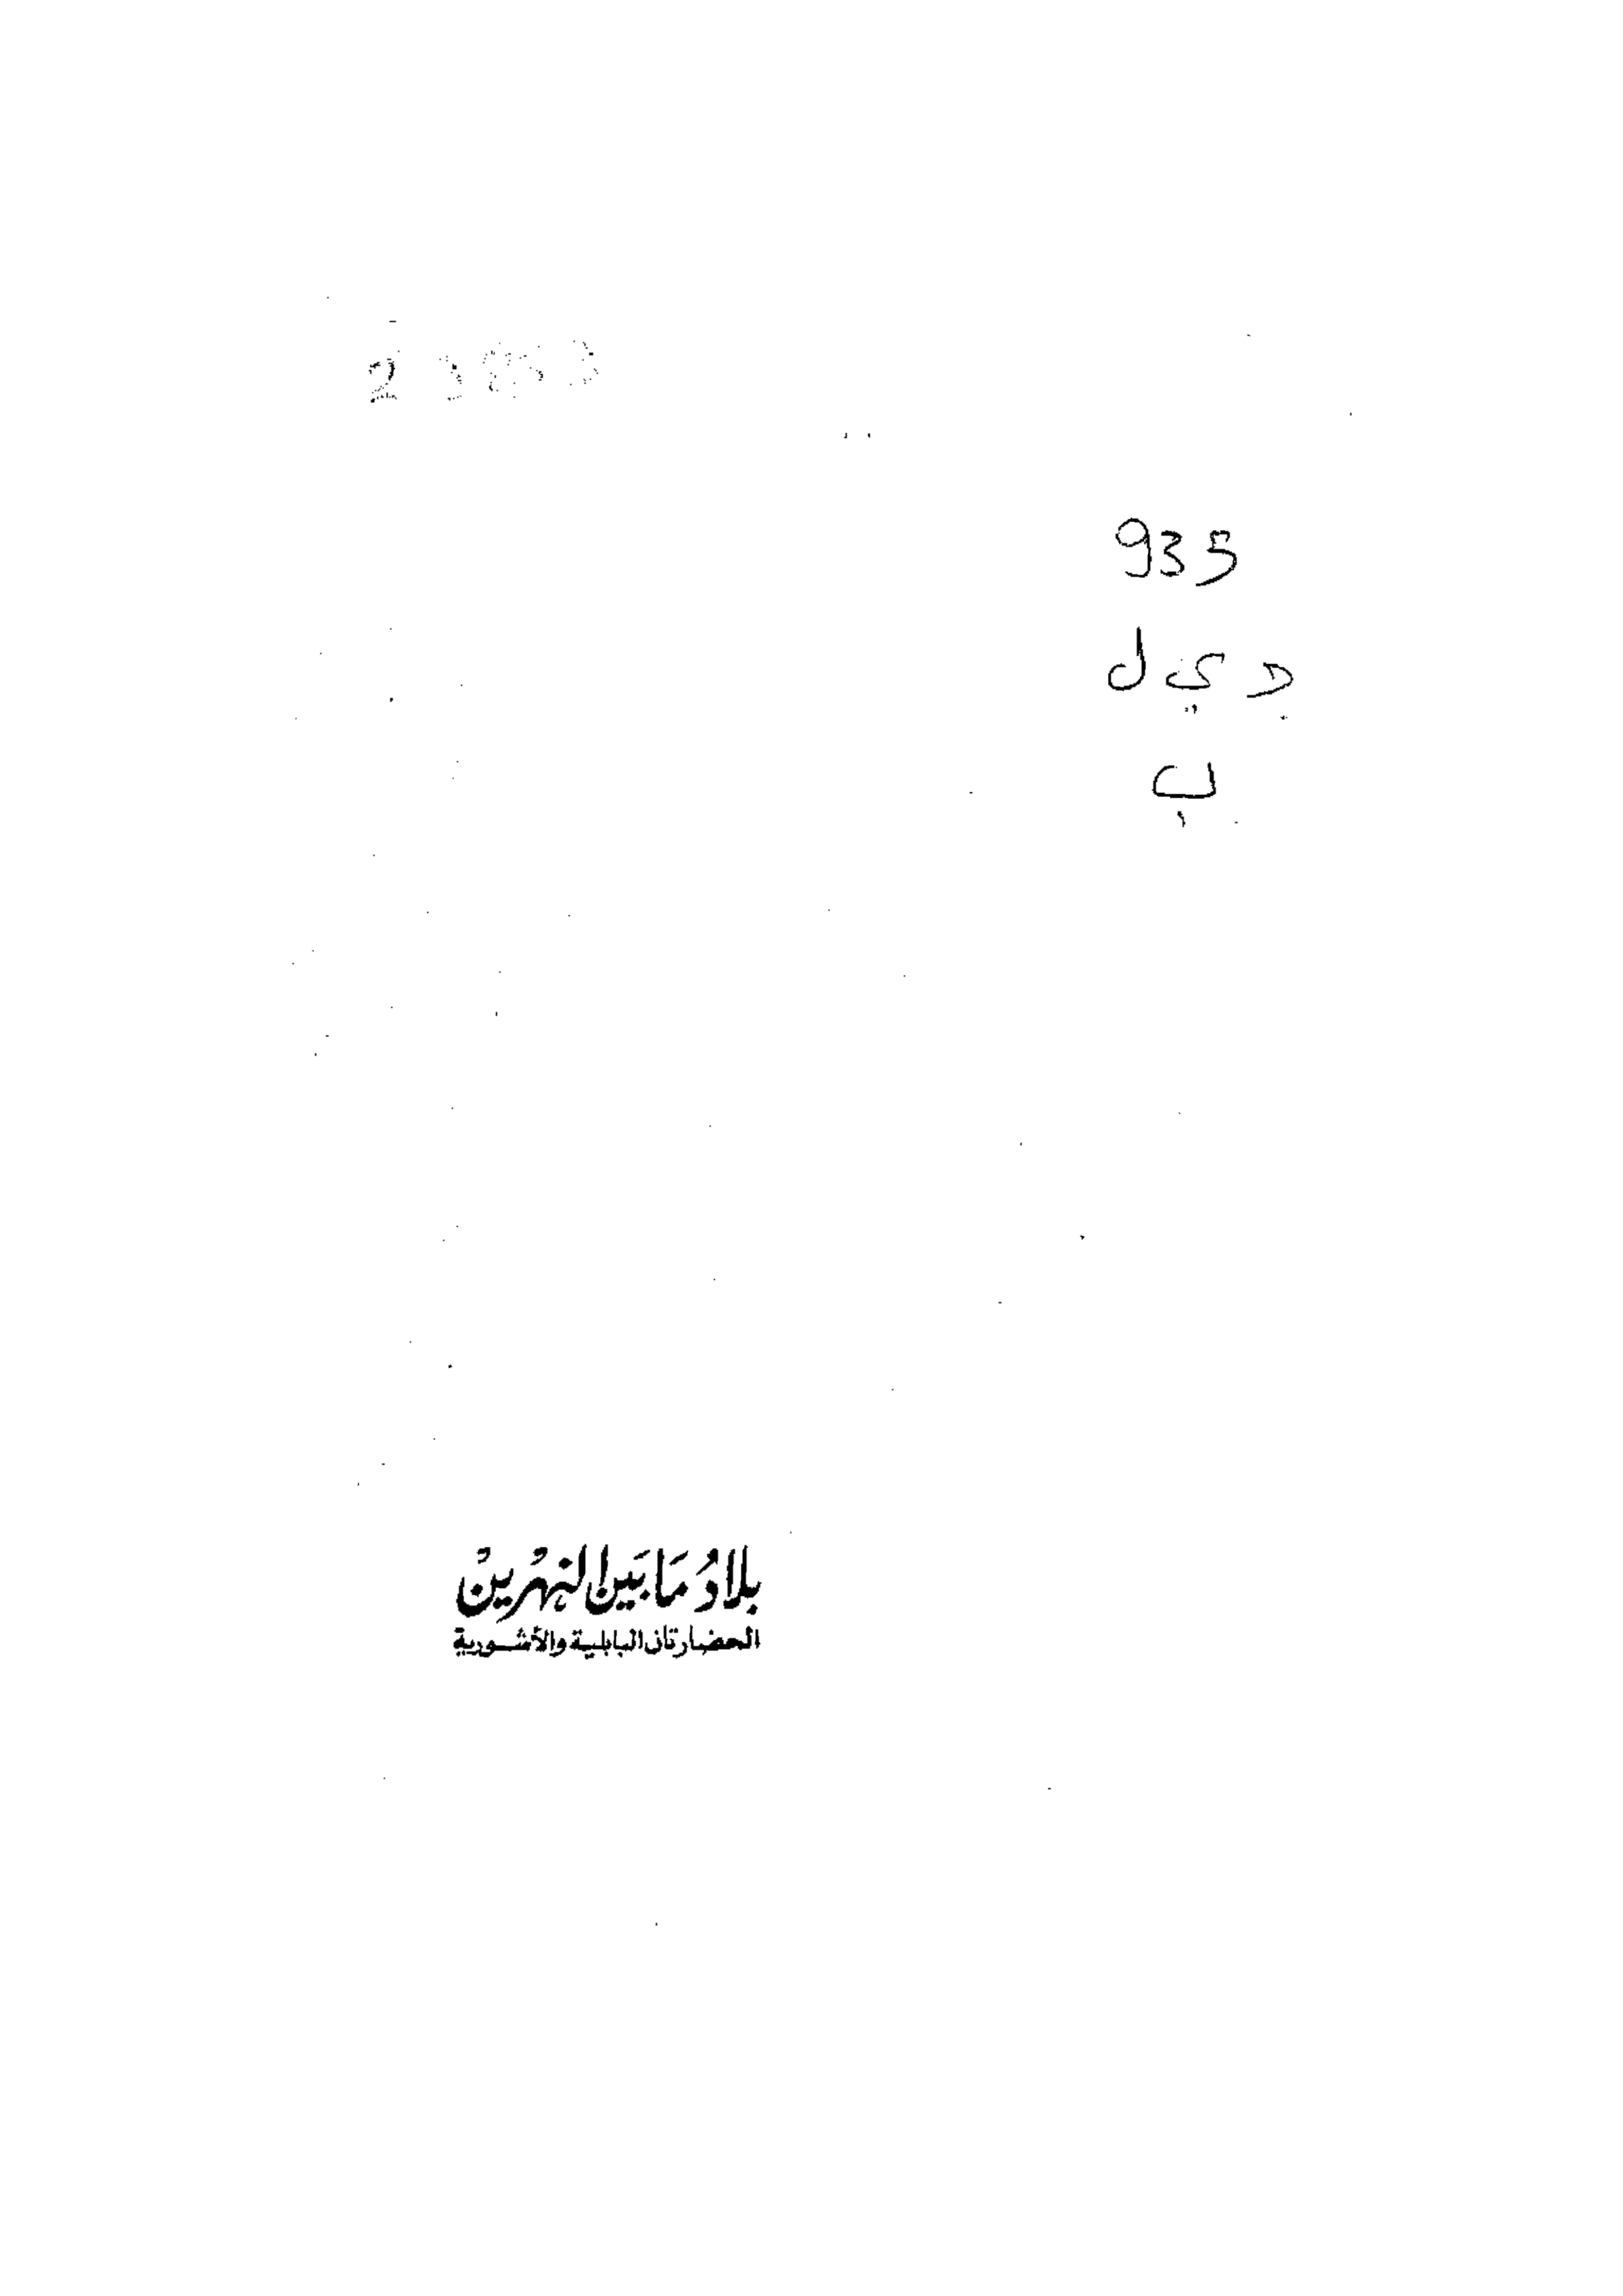 935
د ي ل
ب
بلادُ مَا بَين النهُرينْ
الحضارتان البابلية والأشورية